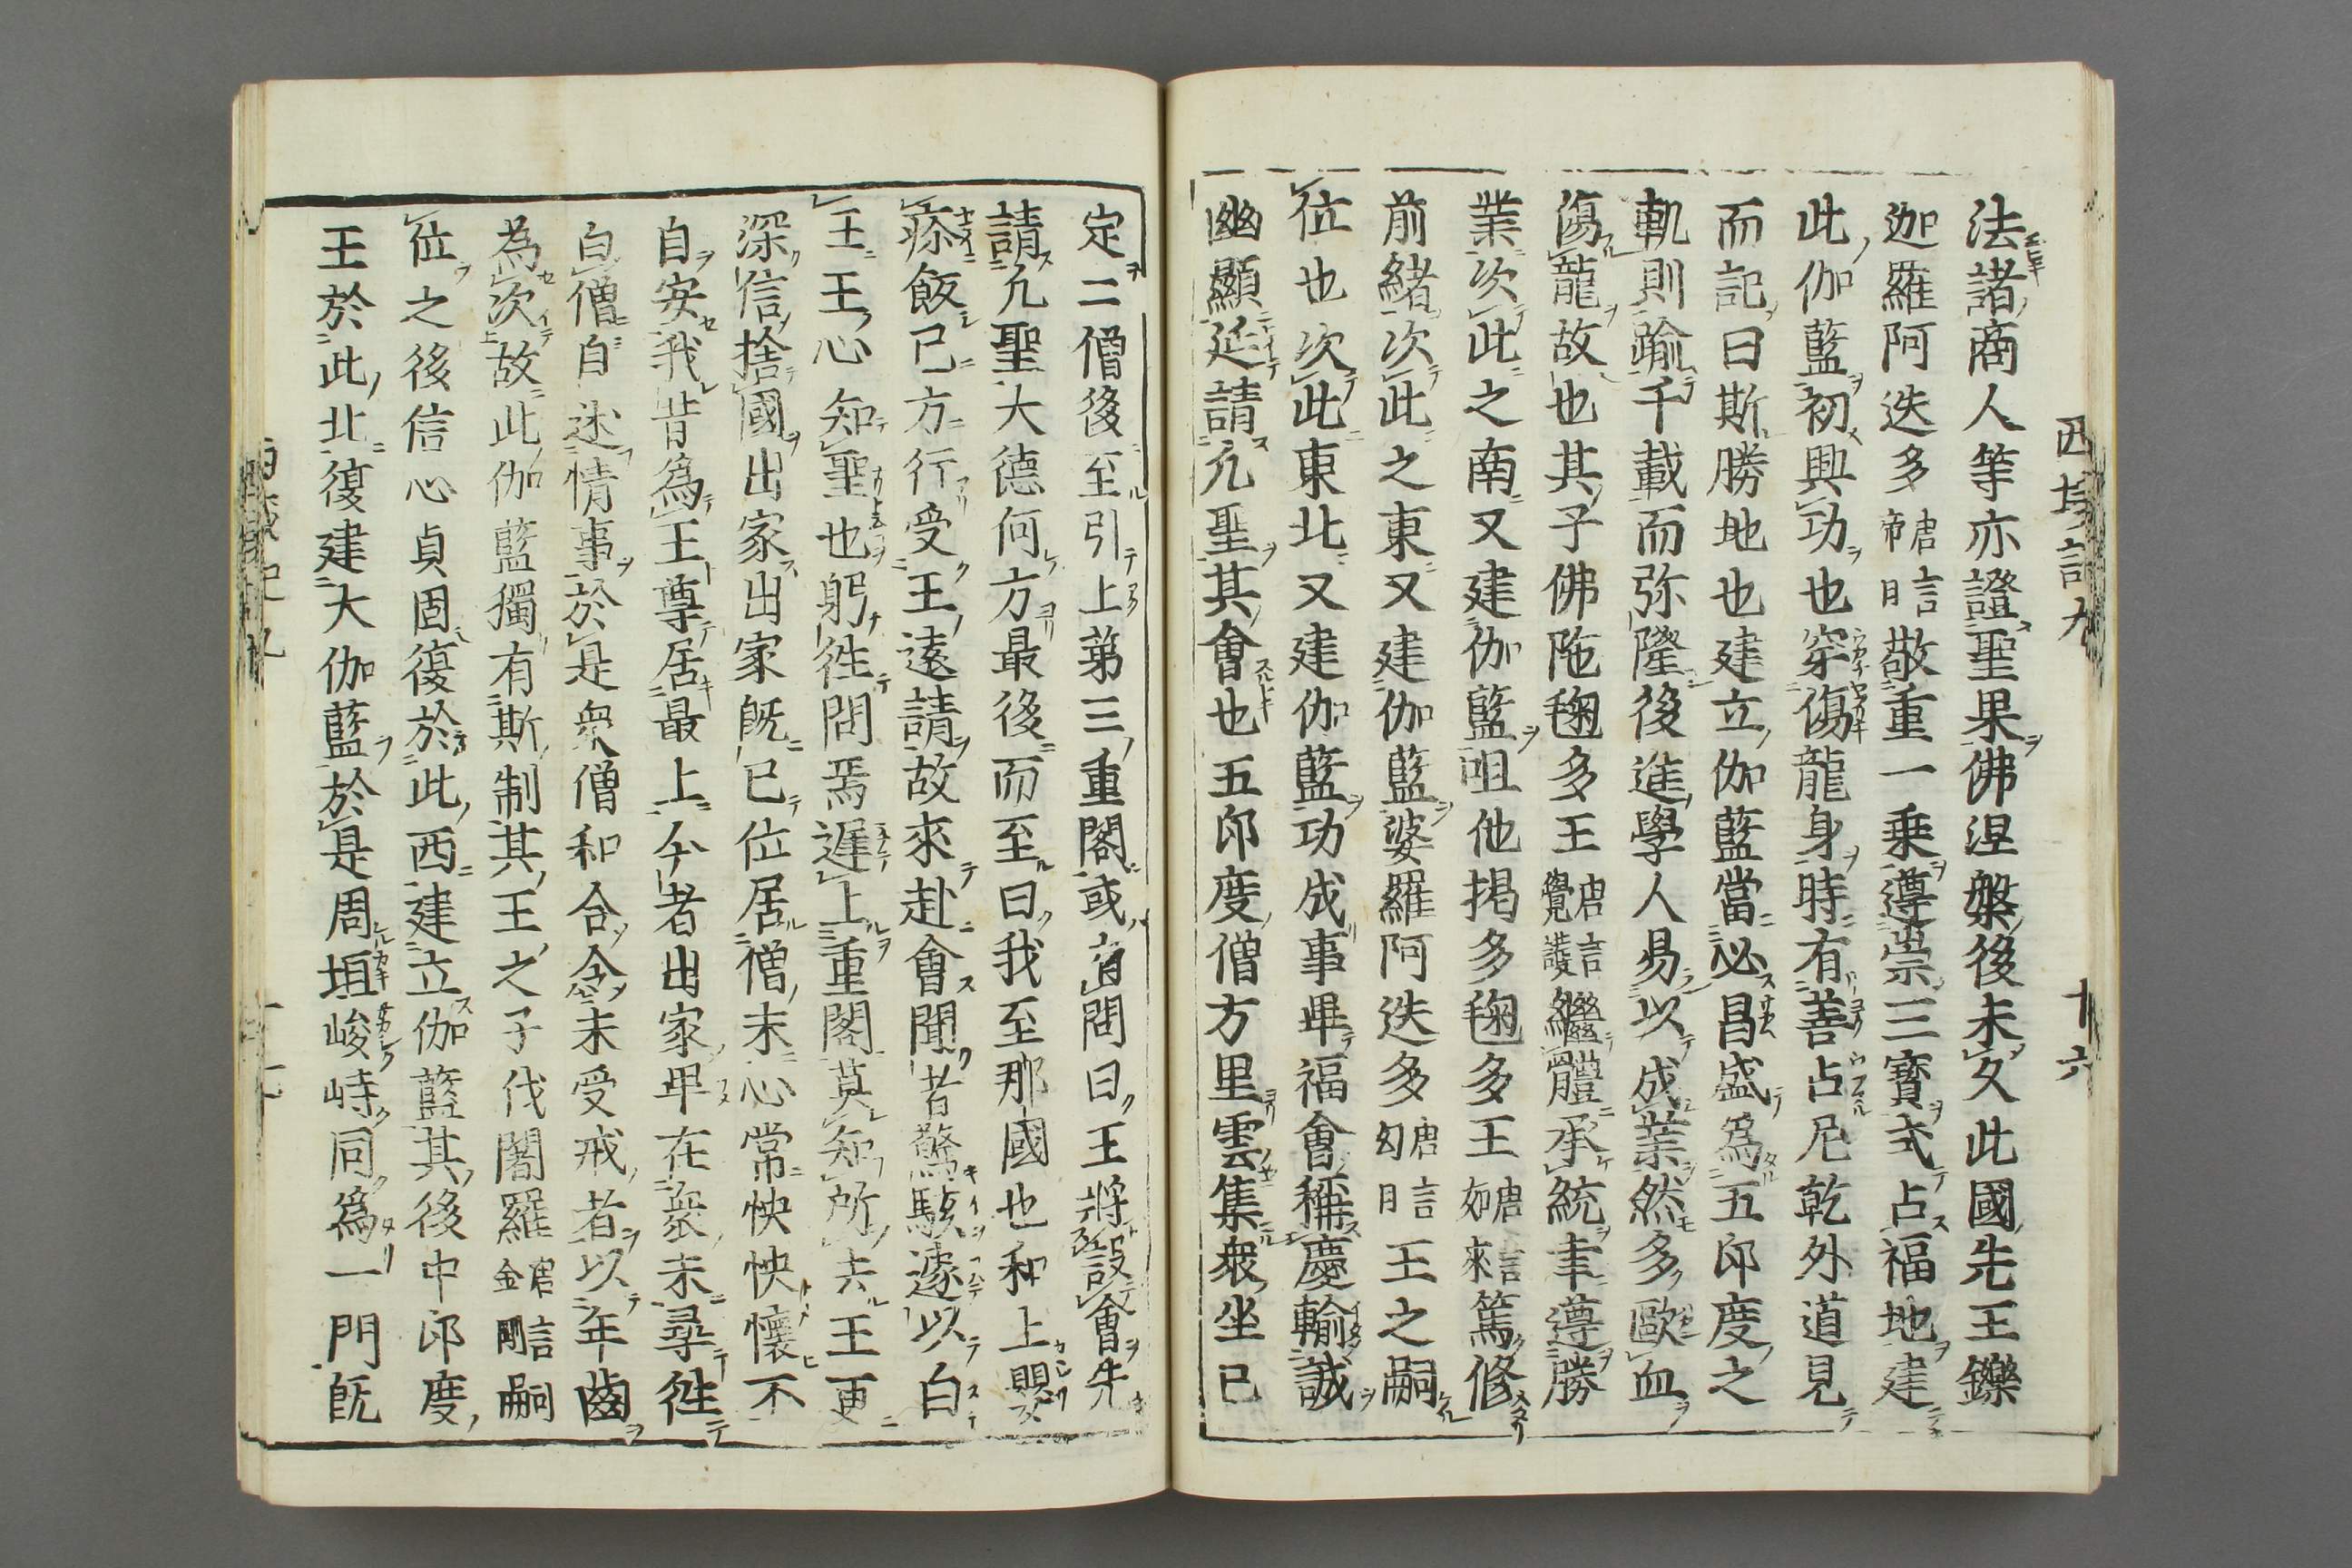 西域記九 十六
法諸商人等亦證聖果佛涅槃後未久此國先王鑠
迦羅阿迭多唐言帝日敬重一乗遵崇三寶式占福地建
此伽藍初興功也穿傷龍身時有善占尼乾外道見
而記曰斯勝地也建立伽藍當必昌盛爲五印度之
軌則踰千載而弥隆後進學人易以成業然多歐血
傷龍故也其子佛陁毱多王唐言覺護繼體承統聿遵勝
業次此之南又建伽藍呾他掲多毱多王唐言如來篤修
前緒次此之東又建伽藍婆羅阿迭多唐言幻日王之嗣
位也次此東北又建伽藍功成事畢福會稱慶輸誠
幽顯延請凢聖其會也五印度僧方里雲集衆坐已
定二僧後至引上第三重閣或有問曰王將設會先
請凢聖大德何方最後而至曰我至那國也和上嬰
疹飯已方行受王遠請故來赴會聞者驚駭遽以白
王王心知聖也躬徃問焉遲上重閣莫知所去王更
深信捨國出家出家既已位居僧末心常怏怏懷不
自安我昔爲王尊居最上今者出家卑在衆末尋徃
白僧自述情事於是衆僧和合令未受戒者以年齒
為次故此伽藍獨有斯制其王之子伐闍羅唐言金剛嗣
位之後信心貞固復於此西建立伽藍其後中印度
王於此北復建大伽藍於是周垣峻峙同爲一門既